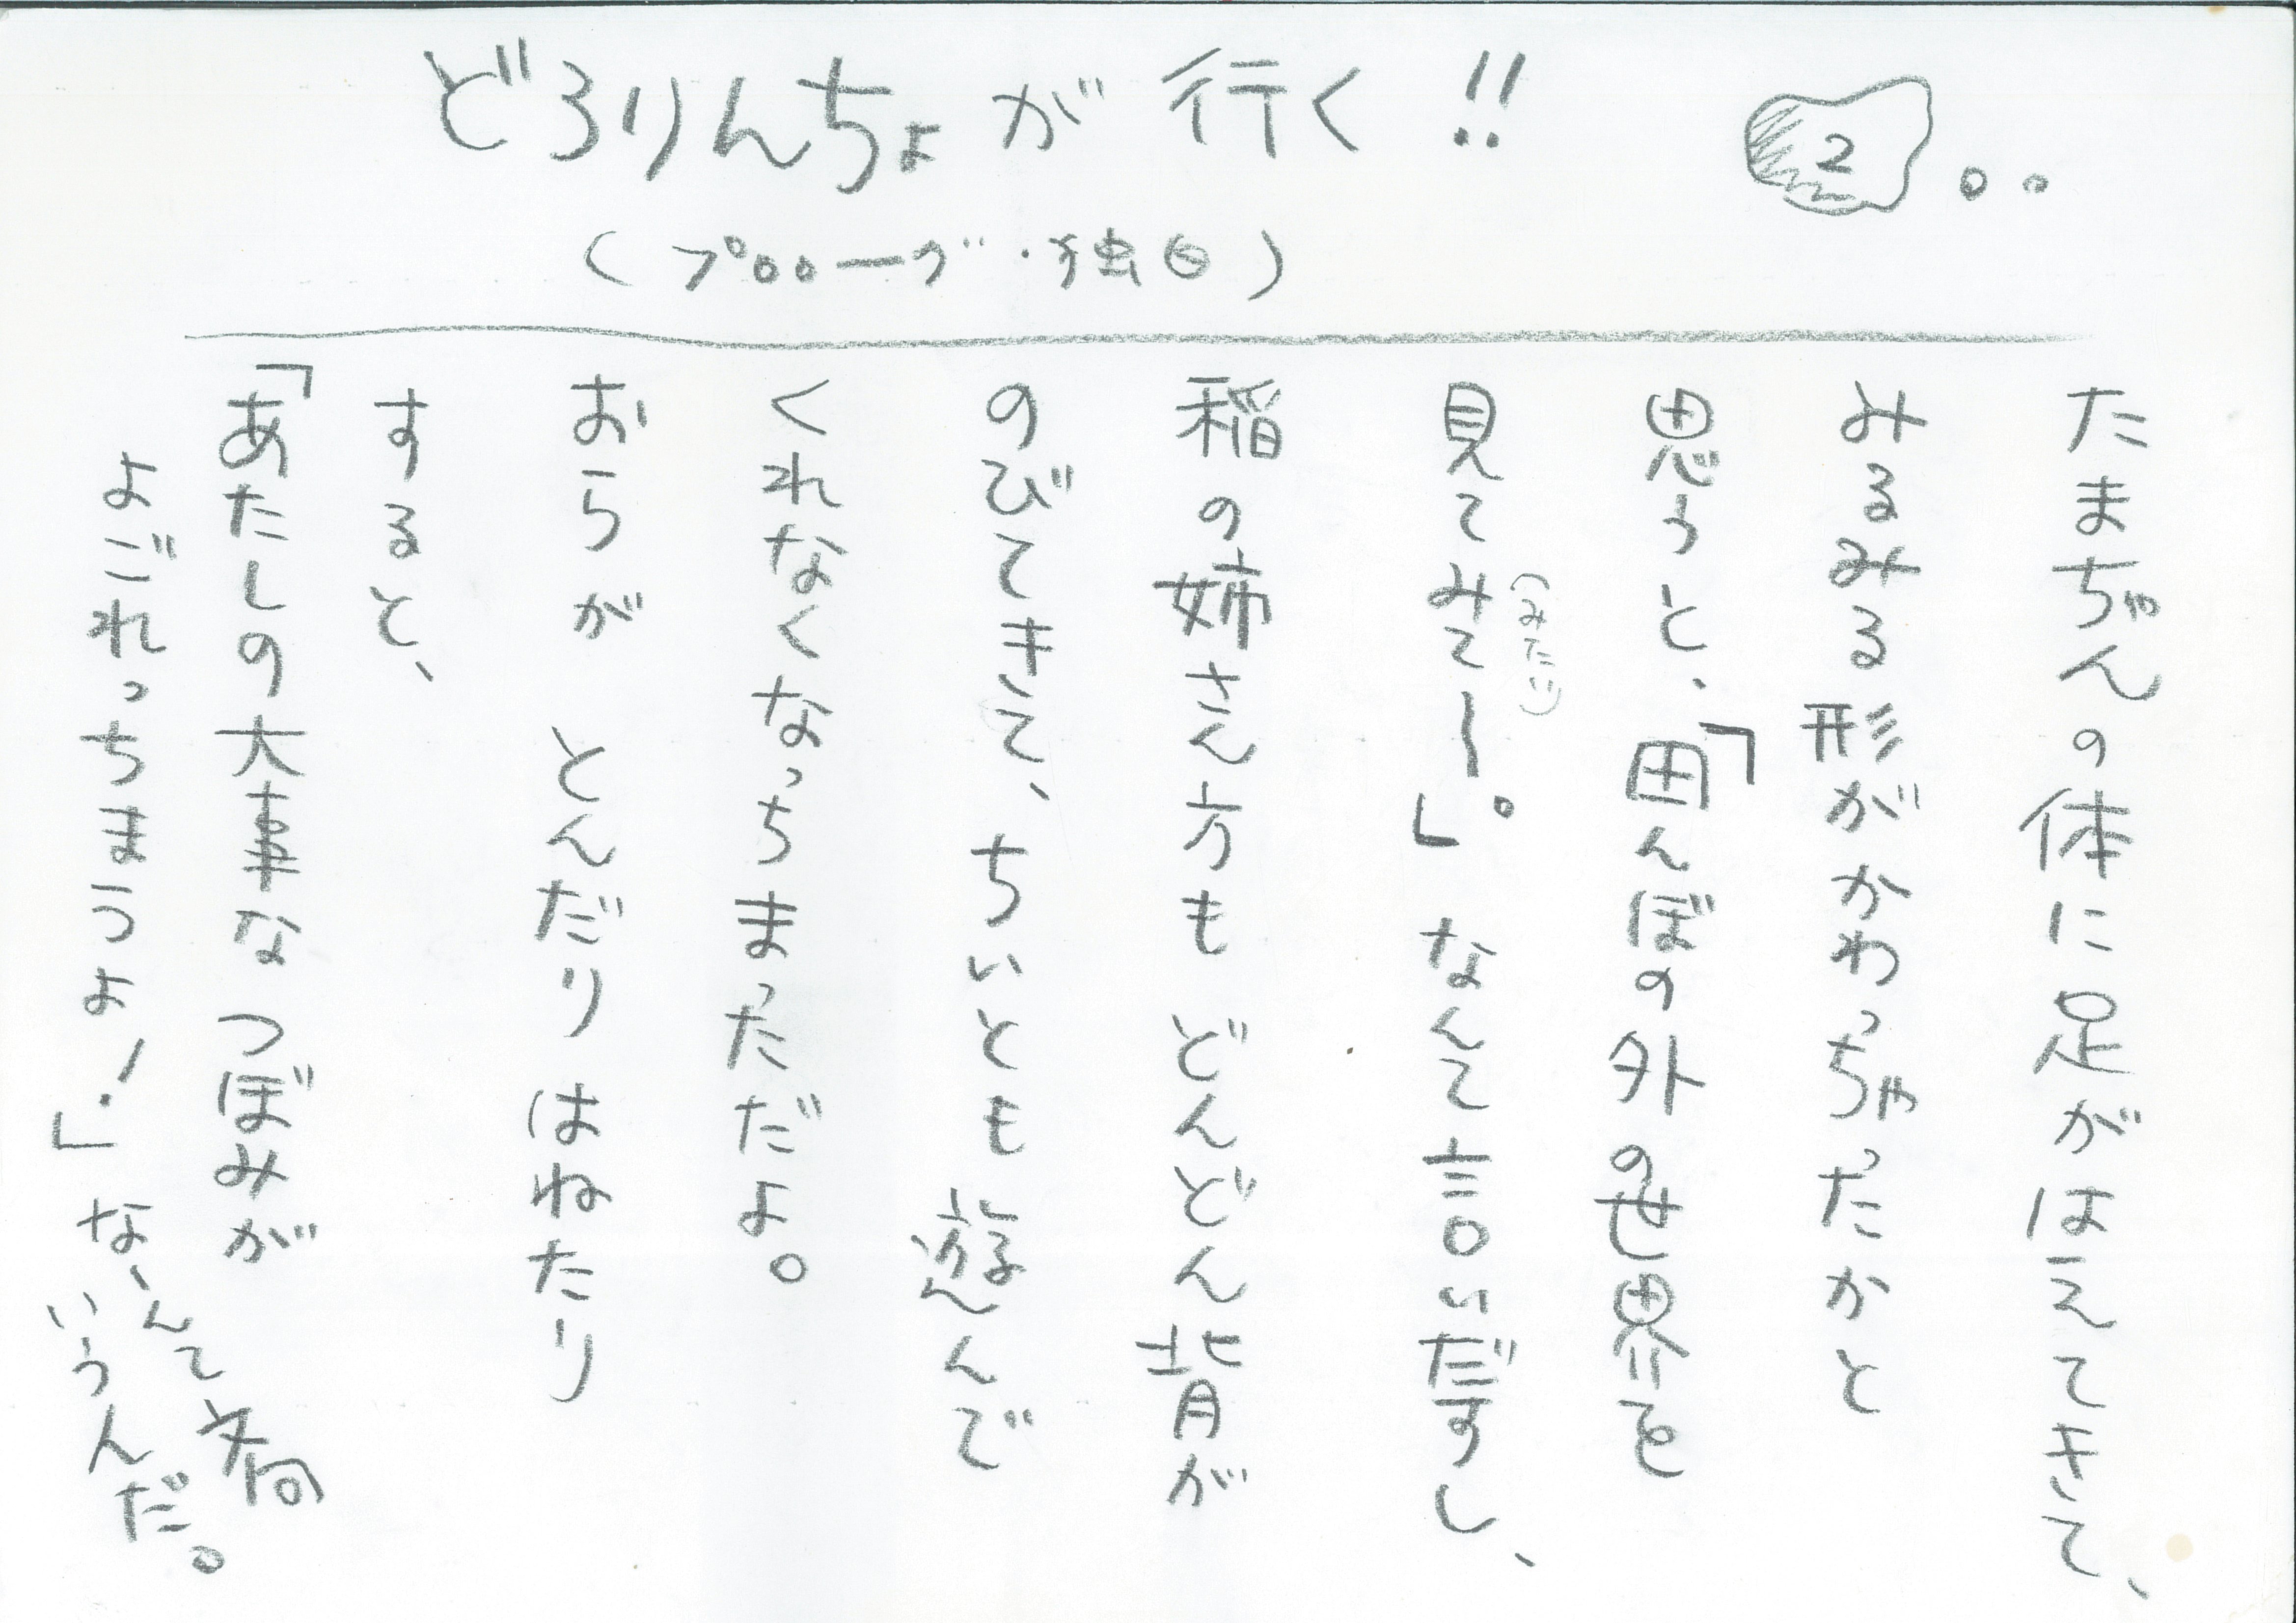 どろりんちょが行く!!
2
(プロローグ・独白)
たまちゃんの体に足がはえてきて、
みるみる形がかわっちゃったかと
思うと、「田んぼの外の世界を
見てみてー。」なんて言いだすし、
(みたい)
稲の姉さん方もどんどん背が
のびてきて、ちいとも遊んで
くれなくなっちまっただよ。
おらが とんだり はねたり
すると、
「あたしの大事なつぼみが
よごれっちまうよ!」なーんて
いうんだ。